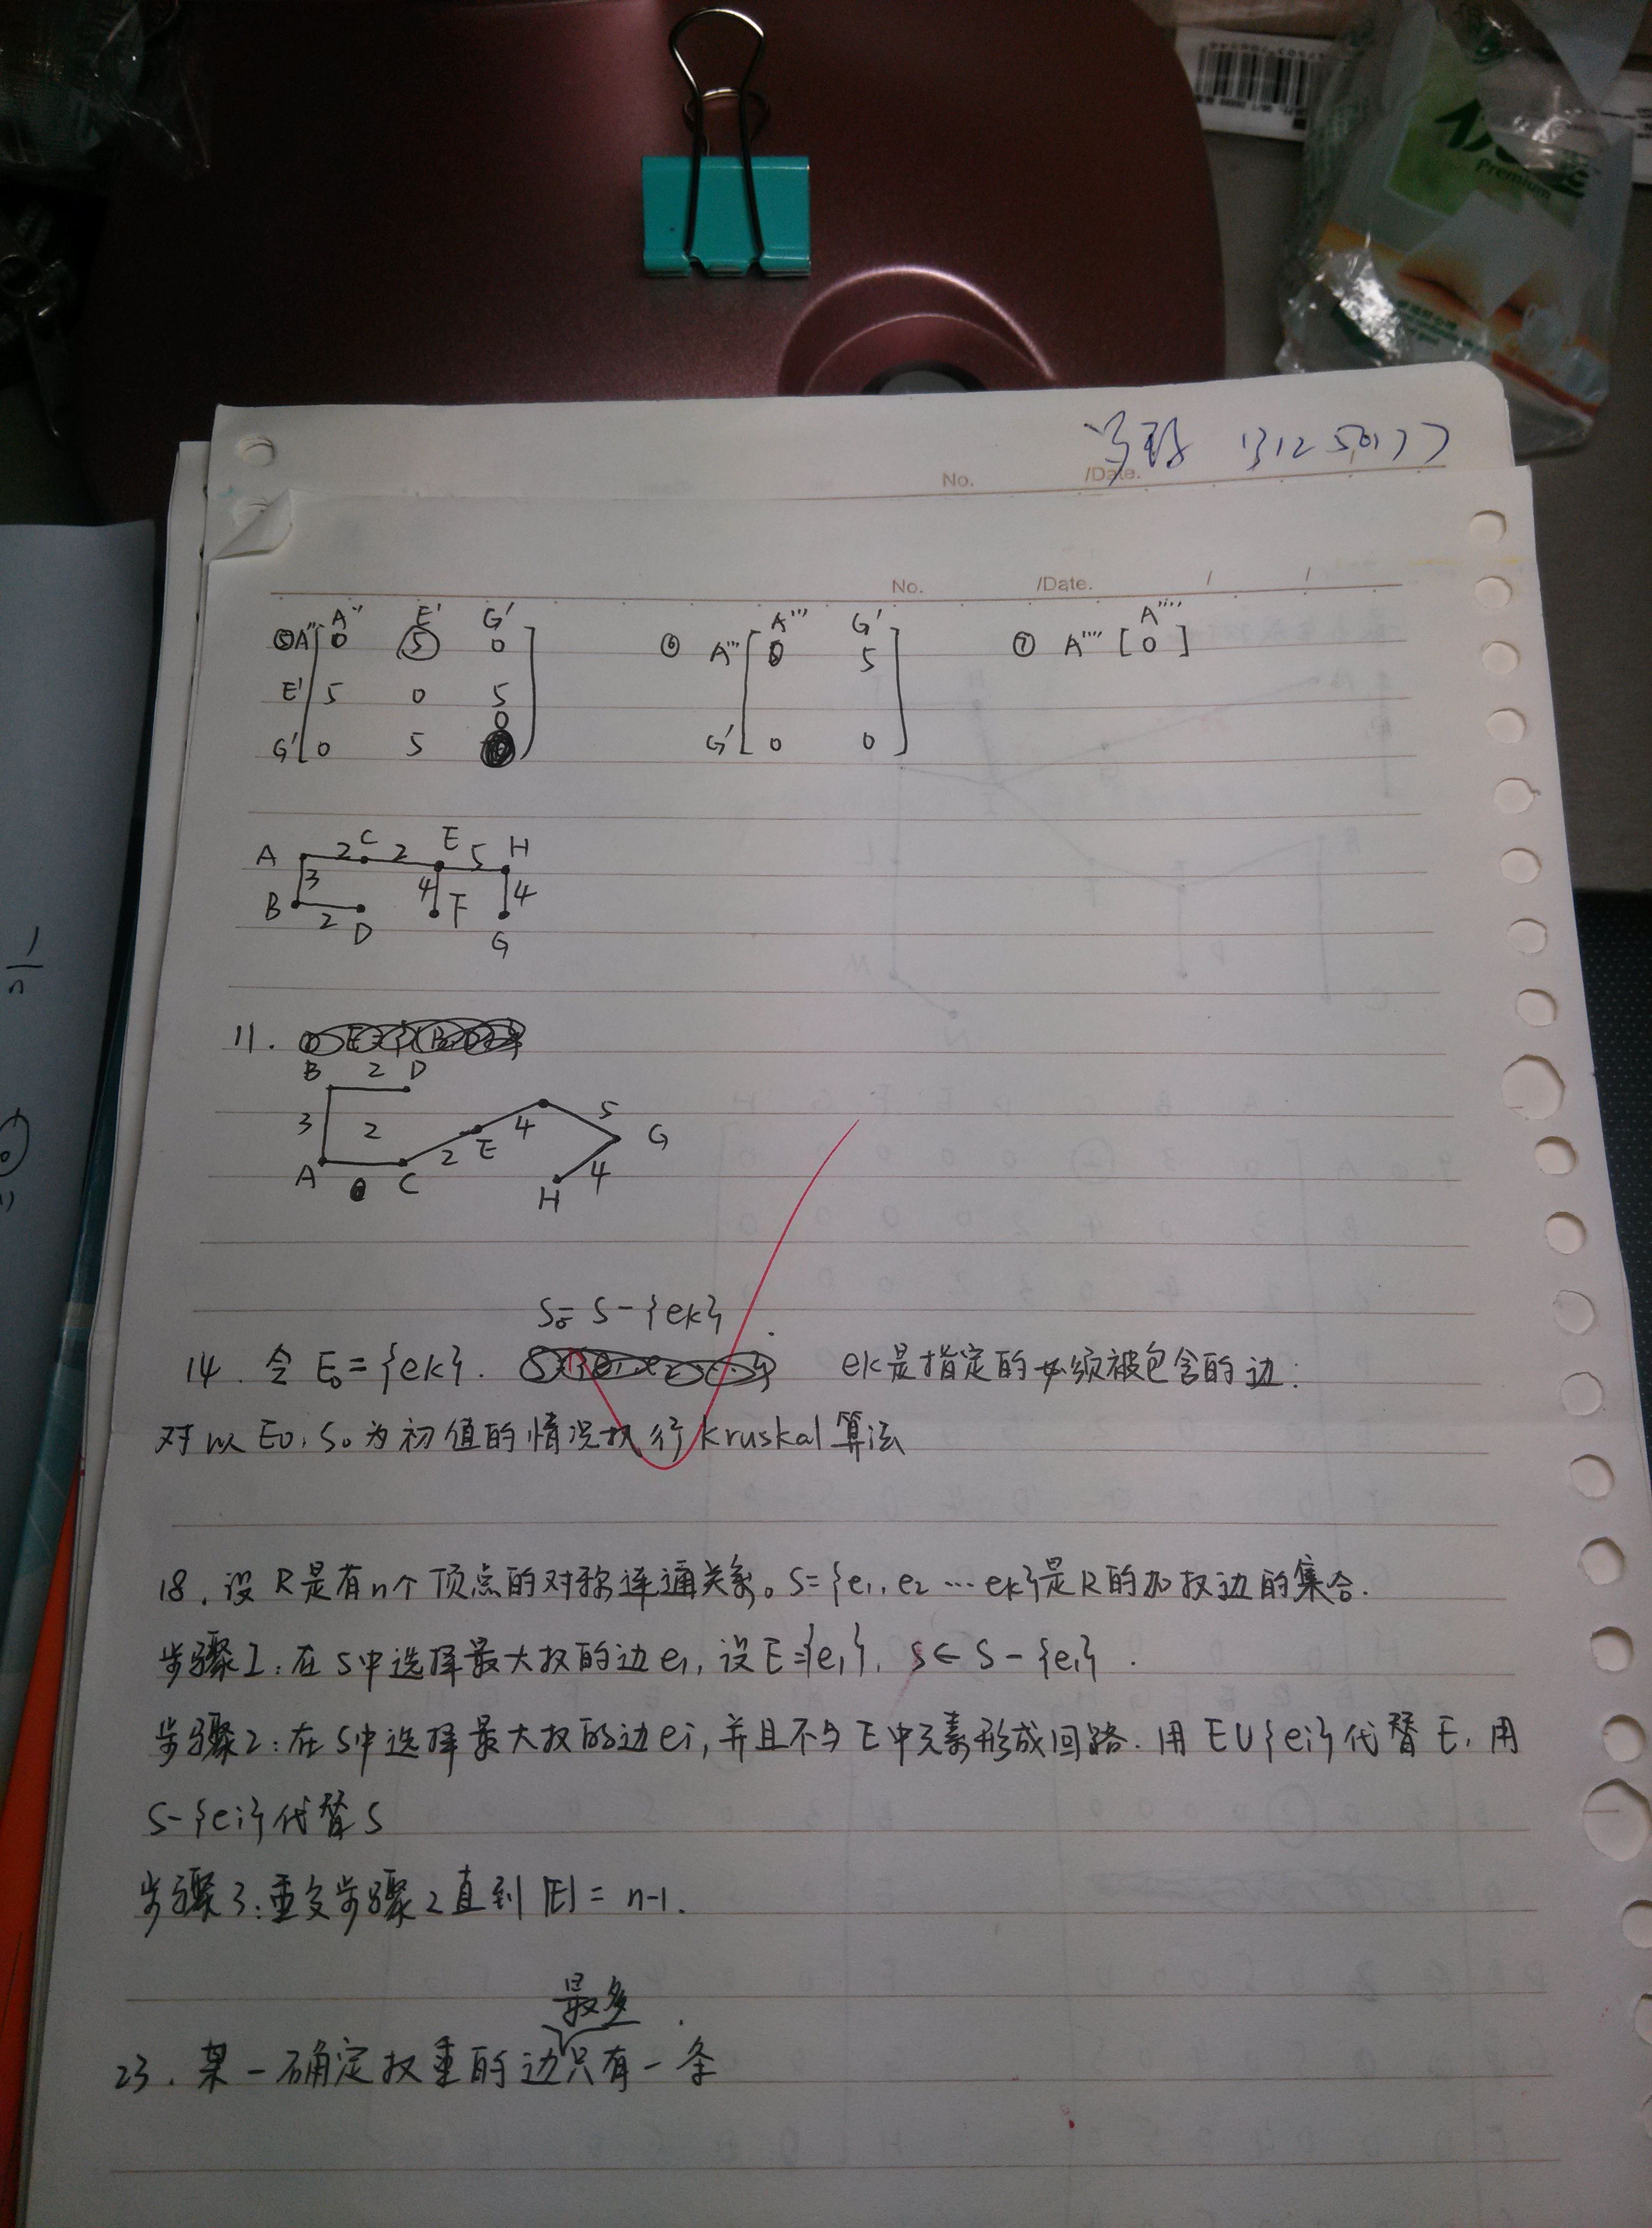 Premium
131250177
No. /Date.
No. /Date. / /
A'' E' G'
⑤A'' 0 5 0
E' 5 0 5
0
G' 0 5
A''' G'
⑥ A''' 0 5
G' 0 0
A''''
⑦ A'''' [0]
A 2 C 2 E 5 H
3 4 4
B 2 D F G
11.
B 2 D
3 2 2 E 4 5 G
A C H 4
S₀= S-{ek}
14. 令 E₀={ek}. ek是指定的必须被包含的边.
对以E₀,S₀为初值的情况执行kruskal算法
18. 设R是有n个顶点的对称连通关系。S={e₁,e₂…ek}是R的加权边的集合.
步骤1:在S中选择最大权的边e₁,设E={e₁}, S←S-{e₁}.
步骤2:在S中选择最大权的边ei,并且不与E中元素形成回路.用E∪{ei}代替E,用
S-{ei}代替S
步骤3:重复步骤2直到|E|=n-1.
最多
23. 某一确定权重的边只有一条